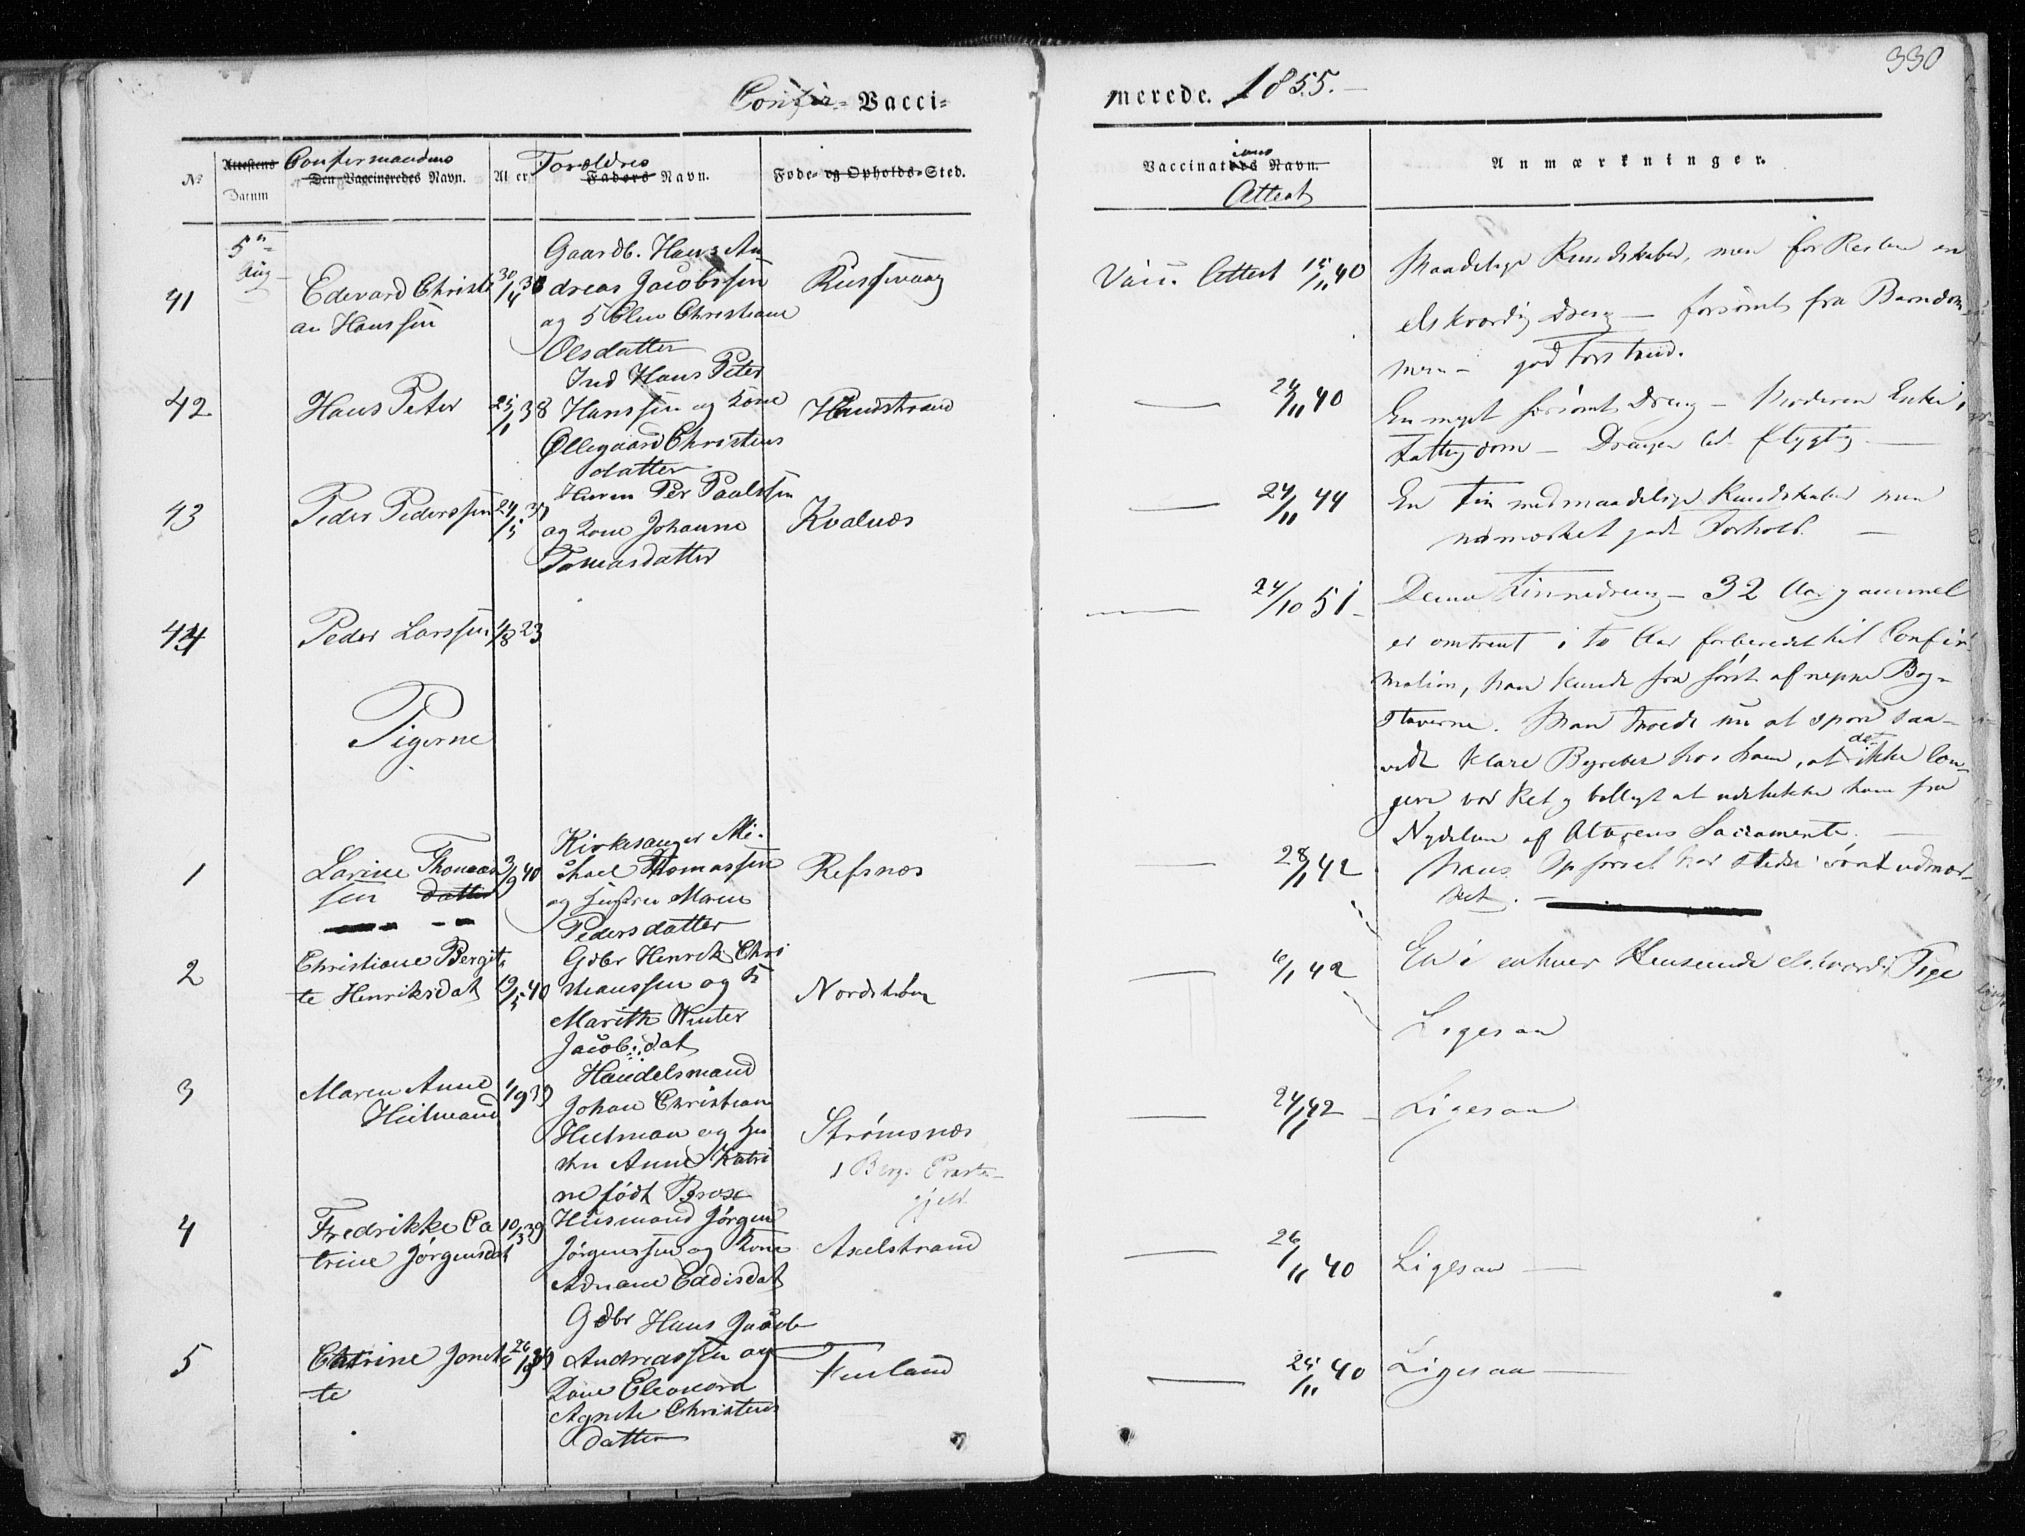 330
Confir- Vacci-
merede. 1855.-
No
Attestens Datum
Confirmandens
Den Vaccineredes Navn.
Alder
Forældres
Faders Navn.
Føde- og Opholds-Sted.
Vaccinations Navn.
Attest
Anmærkninger.
5te Aug
41
Edevard Christi
an Hanssen
30/4 38
Gaardb. Hans An
dreas Jacobssen
og Ellen Christiane
Olsdatter
Russevaag
Vacc. Attest 15/11 40
Maadelige Kundskaber, men for Resten en
elskværdig Dreng - forsømt fra Barndom
men - god Forstand.
42
Hans Peter
25/1 38
Ind Hans Peter
Hanssen og Kone
Øllegaard Christens
datter
24/11 40
En meget forsømt Dreng - Moderen Enke i
Fattigdom - Drengen lidt flygtig.
43
Peder Pederssen
24/5 37
Per Paulssen
og Kone Johanne
Tomasdatter
Kvalnæs
24/11 44
En Fin med maadelige Kundskaber men
udmærket godt Forhold.
44
Peder Larssen
1/8 23
24/10 51
Denne Finnedreng - 32 Aar gammel
er omtrent i to Aar forberedt til Confir
mation, han kunde fra først af neppe Bog-
staverne. Man troede nu at spore saa-
vidt klare Begreber hos ham, at det ikke læn-
gere var Ret og billigt at udelukke ham fra
Nydelsen af Alterens Sacramente.
Hans Opførsel har stedse været udmær-
ket.
Pigerne
1
Larine Thomas
sen datter
3/9 40
Kirkesanger Mi-
chael Thomassen
og Hustru Maren
Pedersdatter
Refsnæs
28/11 42
En i enhver Henseende elskværdig Pige
2
Christiane Bergit
te Henriksdat
19/5 40
Gdbr Henrik Chri
stianssen og
Marith Winter
Jacobsdat
6/1 42
Ligesaa
3
Maren Anne
Heitmand
1/9 39
Handelsmand
Johan Christian
Heitman og Hu
stru Anne Katri
ne født Brose
Strømsnæs
i Bergs Præste-
gjeld
24/11 42
Ligesaa
4
Fredrikke Ca
trine Jørgensdat
10/3 39
Husmand Jørgen
Jørgenssen og Kone
Adriane Eddisdat
Axelstrand
26/11 40
Ligesaa
5
Catrine Jonet
te
26/9 39
Gdbr Hans Jacob
Andreassen og
Kone Eleonora
Agnete Christens
datter
Finland
25/11 40
Ligesaa